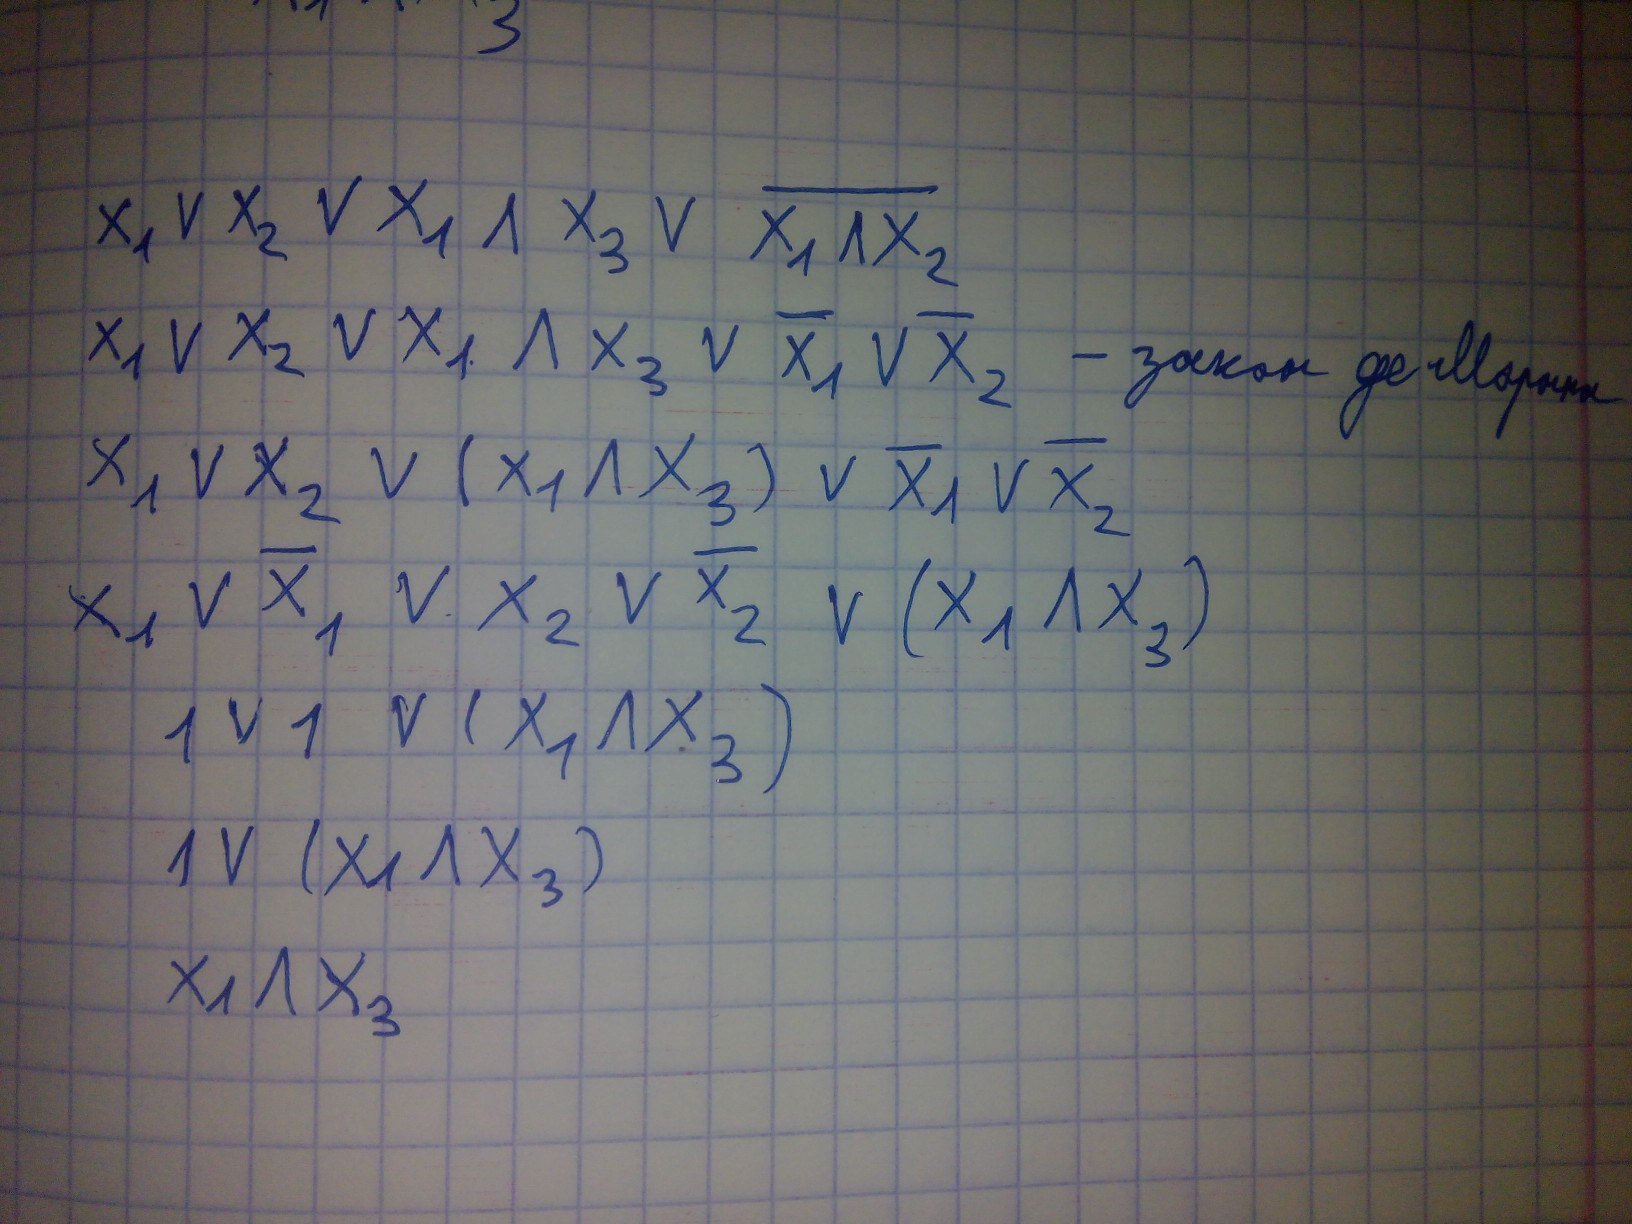 x₁ ∨ x₂ ∨ x₁ ∧ x₃ ∨ x̅₁̅ ̅∧̅ ̅x̅₂̅
x₁ ∨ x₂ ∨ x₁ ∧ x₃ ∨ x̅₁ ∨ x̅₂ – закон де Моргана
x₁ ∨ x₂ ∨ (x₁ ∧ x₃) ∨ x̅₁ ∨ x̅₂
x₁ ∨ x̅₁ ∨ x₂ ∨ x̅₂ ∨ (x₁ ∧ x₃)
1 ∨ 1 ∨ (x₁ ∧ x₃)
1 ∨ (x₁ ∧ x₃)
x₁ ∧ x₃